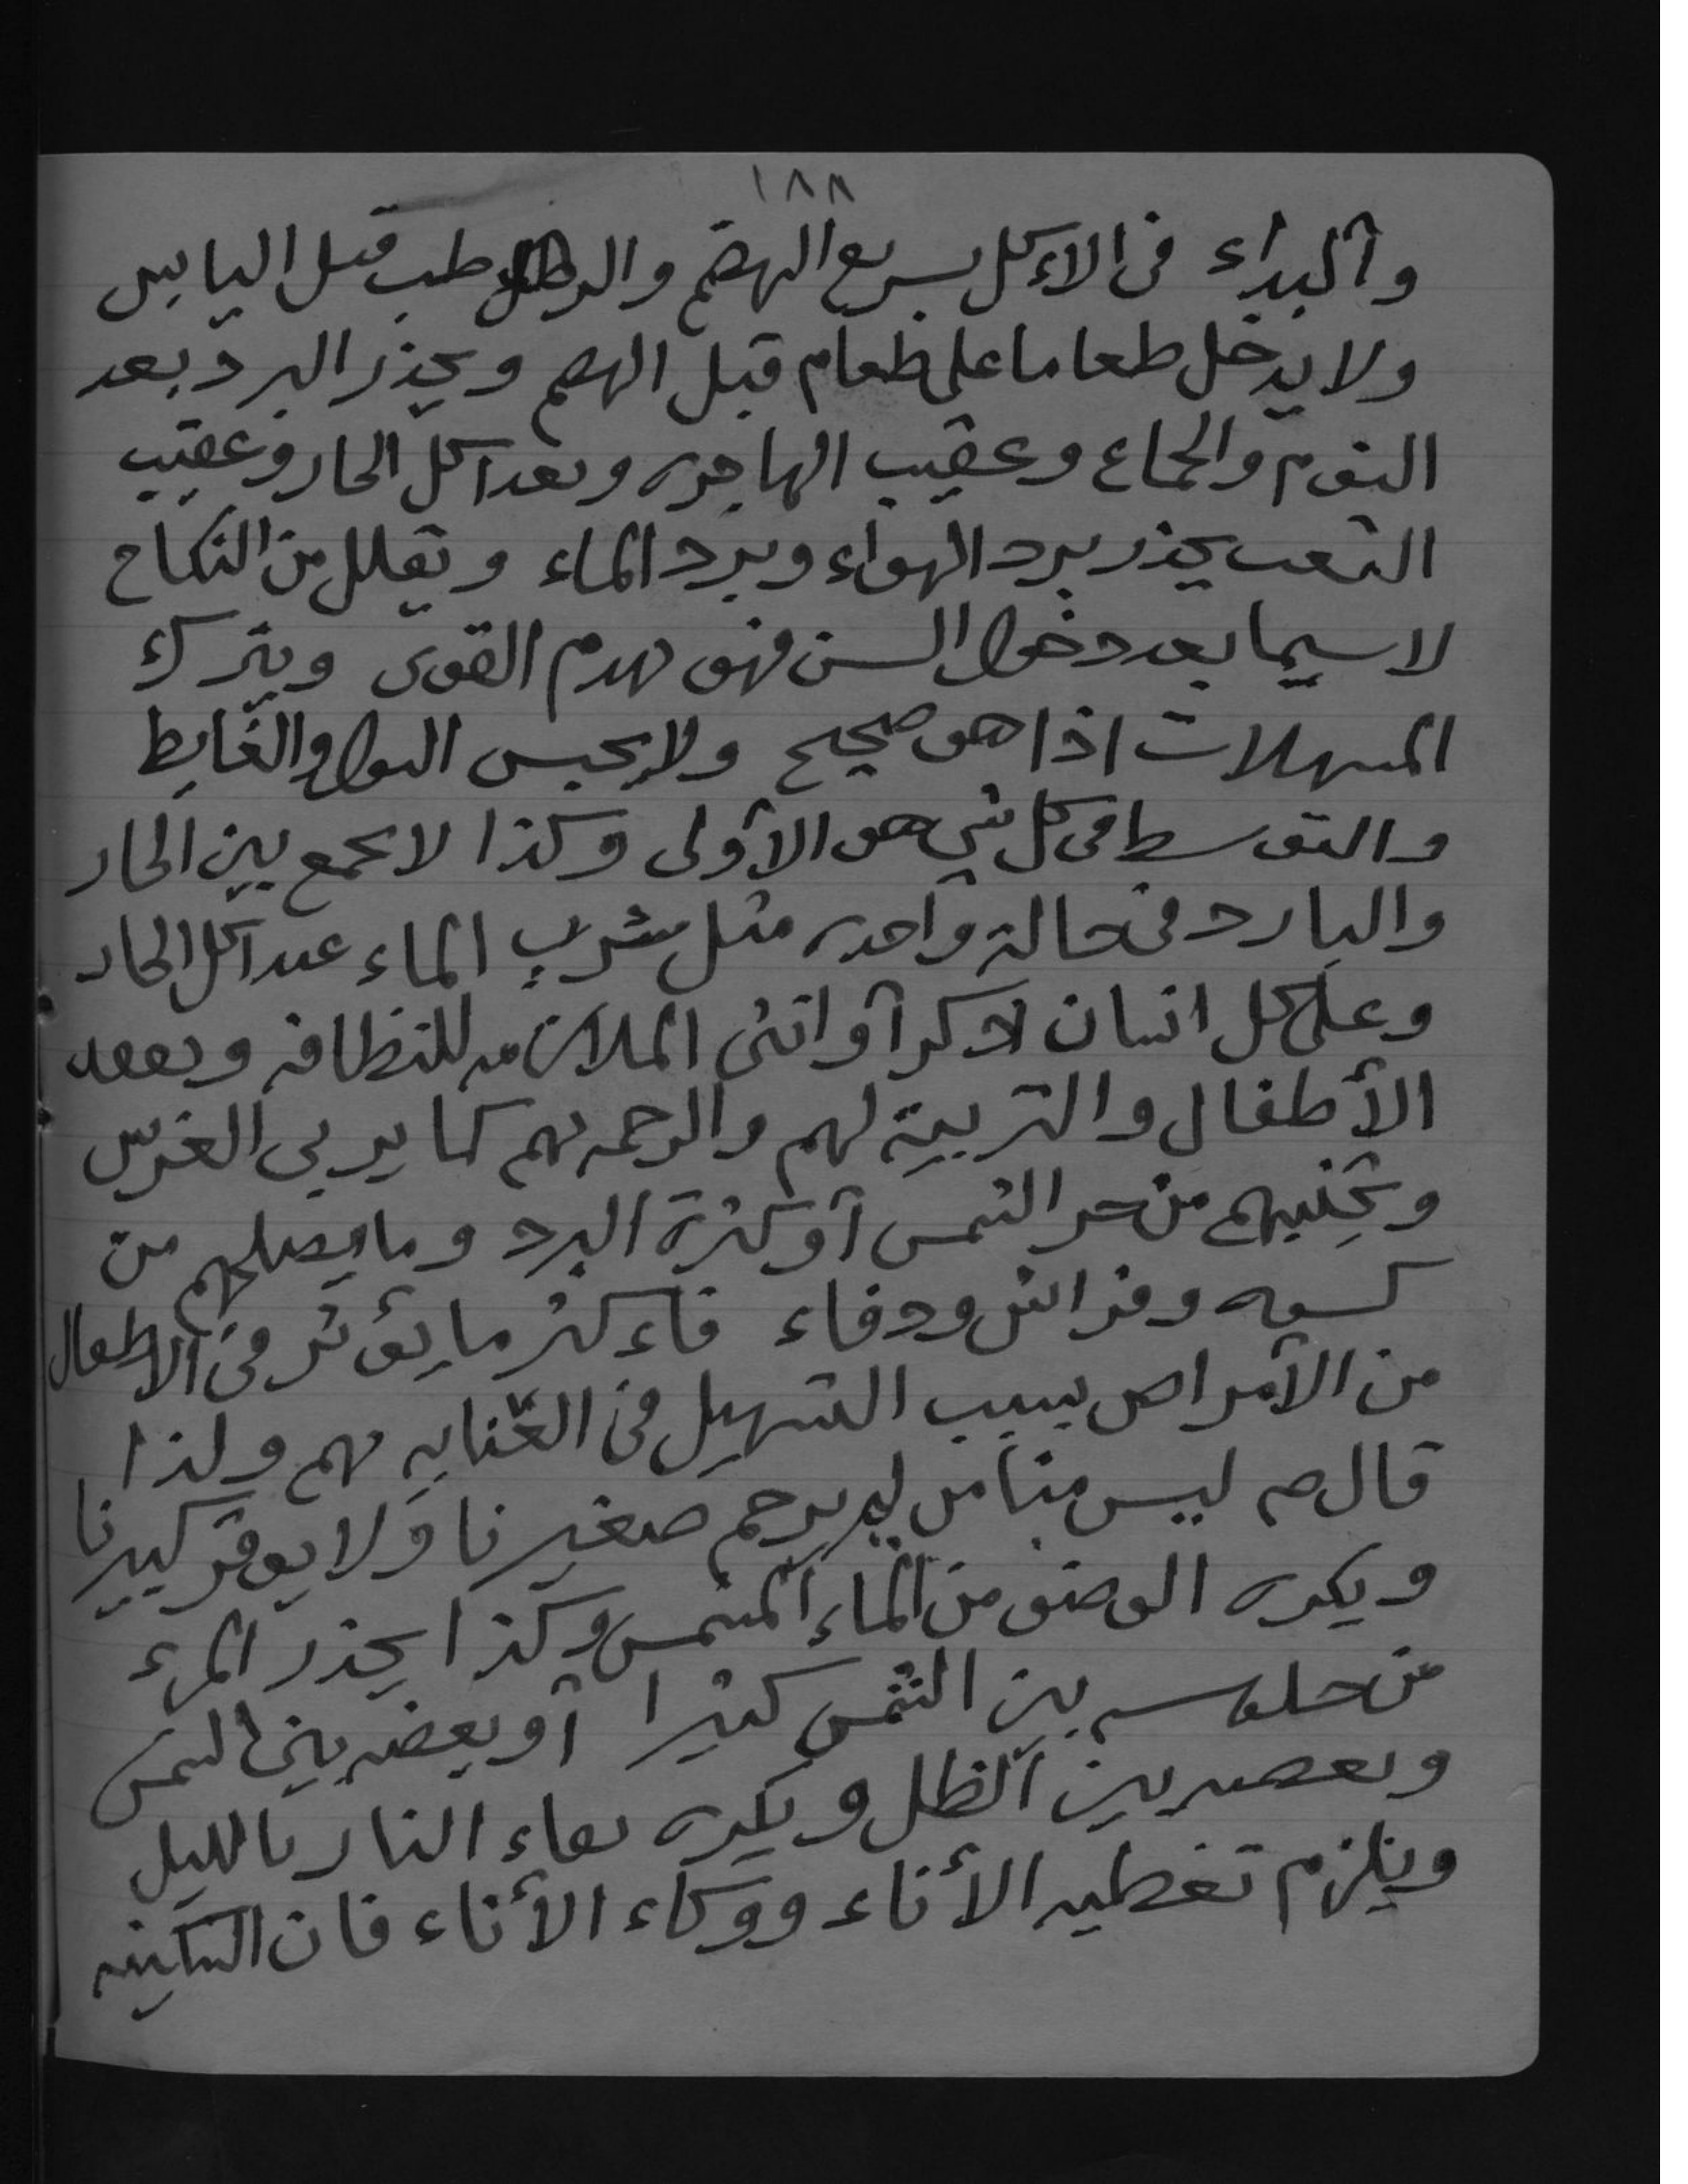 ١٨٨
والبداء فى الاءكل بسريع الهضم والرطب قبل اليابس
ولا يدخل طعاما على طعام قبل الهضم ويحذر البرد بعد
النوم والجماع وعقيب الهاجره وبعد اكل الحار وعقيب
التعب يحذر برد الهواء وبرد الماء ويقلل من النكاح
لا سيما بعد دخول السن فهو يهدم القوى ويترك
المسهلات اذا هو صحيح ولا يحبس البول والغايط
والتوسط فى كل شي هو الأولى وكذا لا يجمع بين الحار
والبارد فى حالة واحده مثل شرب الماء عند اكل الحار
وعلى كل انسان ذكرا أو انثى الملازمه للنظافه وتعهد
الأطفال والتربية لهم والرحمه بهم كما يربى الغرس
وتجنيبهم من حر الشمس أو كثرة البرد وما يصلحهم من
كسوه وفراش ودفاء فاءكثر ما يؤثر فى الاطفال
من الأمراض بسبب التسهيل فى العنايه بهم ولذا
قال صم ليس منا من لم يرحم صغيرنا ولا يوقر كبيرنا
ويكره الوضو من الماء المشمس وكذا يحذر المرء
من جلوسه بين الشمس كثيرا أو بعضه بين الشمس
وبعضه بين الظل ويكره بقاء النار بالليل
ويلزم تغطيه الأناء ووكاء الأناء فان السكينه